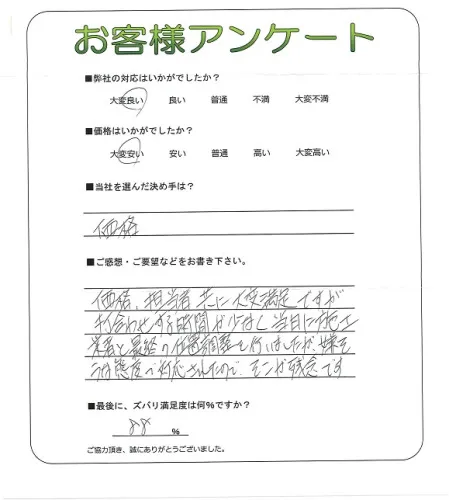 お客様アンケート
■弊社の対応はいかがでしたか?
大変良い 良い 普通 不満 大変不満
■価格はいかがでしたか?
大変安い 安い 普通 高い 大変高い
■当社を選んだ決め手は?
価格
■ご感想・ご要望などをお書き下さい。
価格、担当者共に大変満足ですが
打合わせする時間が少なく当日に施工
業者と最終の位置調整を行いましたが、嫌そ
うな態度で対応されたので、そこが残念です
■最後に、ズバリ満足度は何%ですか?
88 %
ご協力頂き、誠にありがとうございました。